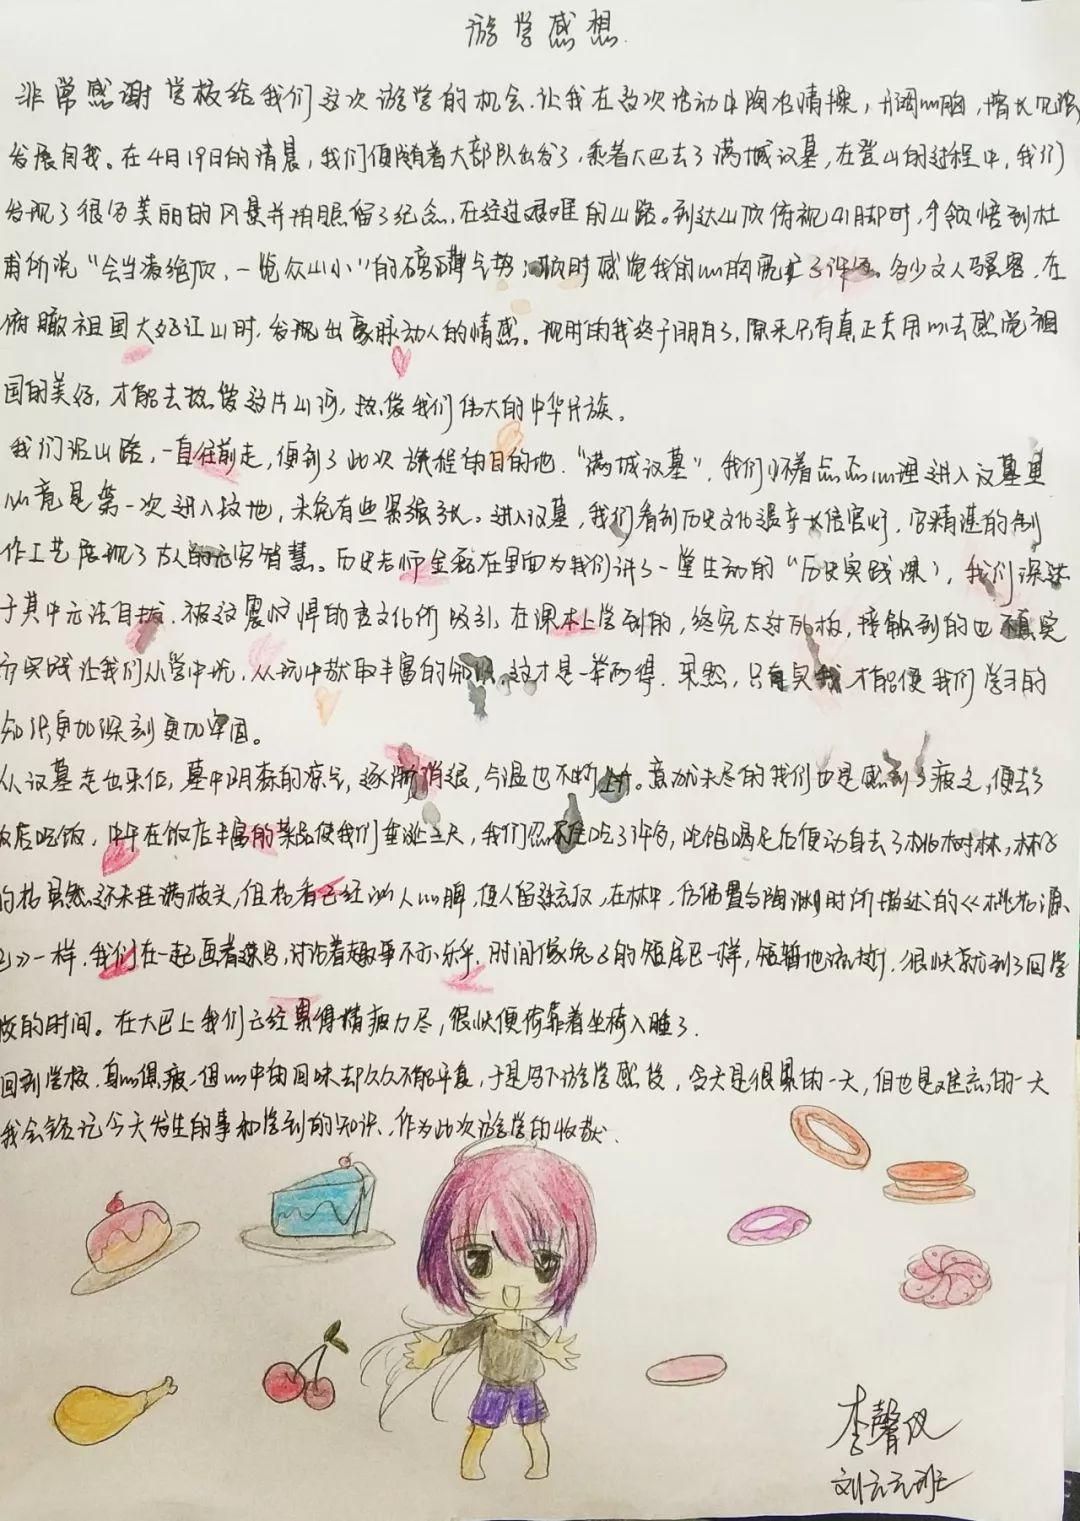 游学感想.
非常感谢学校给我们这次游学的机会.让我在这次活动中陶冶情操，开阔心胸，增长见识
发展自我。在4月19日的清晨，我们便随着大部队出发了，乘着大巴去了满城汉墓，在登山的过程中，我们
发现了很多美丽的风景并拍照留了纪念，在经过艰难的山路。到达山顶俯视山脚时，才领悟到杜
甫所说“会当凌绝顶，一览众山小”的磅礴气势；顿时感觉我的心胸宽扩了许多。多少文人骚客，在
俯瞰祖国大好江山时，发现出豪脉动人的情感。现时的我终于明白了，原来只有真正去用心去感觉祖
国的美好，才能去热爱这片山河，热爱我们伟大的中华民族。
我们沿山路，一直往前走，便到了此次旅程的目的地.“满城汉墓”，我们怀着忐忑心理进入汉墓里
心竟是第一次进入坟地，未免有些紧张。进入汉墓，我们看到历史文化遗产长信宫灯，它精湛的制
作工艺展现了古人的智慧。历史老师在里面为我们讲了一堂生动的“历史实践课），我们深迷
于其中无法自拔.被这震惊的文化所吸引，在课本上学到的，终究太过死板，接触到的也不真实
而实践让我们从学中玩，从玩中获取丰富的知识，这才是一举两得.果然，只有实践才能使我们学习的
知识更加深刻更加牢固。
从汉墓走出来后，墓中阴森的凉气，逐渐消退，气温也不断上升。意犹未尽的我们也是感到了疲乏，便去了
饭店吃饭，中午在饭店丰富的菜品使我们垂涎三尺，我们忍不住吃了许多，吃饱喝足后便动身去了桃树林，林子
的花虽然还未挂满枝头，但花香已经沁人心脾，使人留连忘返，在林中，仿佛置身陶渊明时所描述的《桃花源
记》一样.我们在一起画着速写，讨论着趣事不亦乐乎.时间像兔子的短尾巴一样，短暂地流逝，很快就到了回学
校的时间。在大巴上我们已经累得精疲力尽，很快便倚靠着坐椅入睡了.
回到学校.身心俱疲.但心中的回味却久久不能平复，于是写下游学感悟，今天是很累的一天，但也是难忘的一天
我会铭记今天发生的事和学到的知识.作为此次游学的收获.
李馨仪
刘云云班